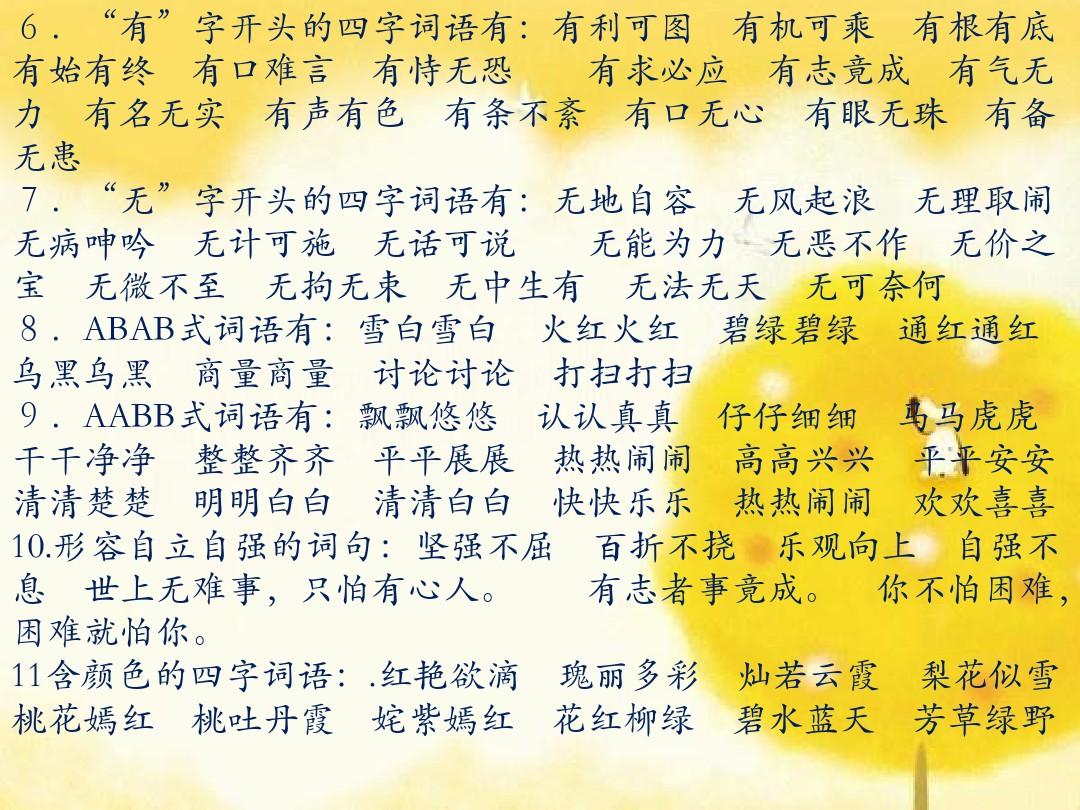 ６．“有”字开头的四字词语有：有利可图　有机可乘　有根有底
有始有终　有口难言　有恃无恐　　有求必应　有志竟成　有气无
力　有名无实　有声有色　有条不紊　有口无心　有眼无珠　有备
无患
７．“无”字开头的四字词语有：无地自容　无风起浪　无理取闹
无病呻吟　无计可施　无话可说　　无能为力　无恶不作　无价之
宝　无微不至　无拘无束　无中生有　无法无天　无可奈何
８．ABAB式词语有：雪白雪白　火红火红　碧绿碧绿　通红通红
乌黑乌黑　商量商量　讨论讨论　打扫打扫
９．AABB式词语有：飘飘悠悠　认认真真　仔仔细细　马马虎虎
干干净净　整整齐齐　平平展展　热热闹闹　高高兴兴　平平安安
清清楚楚　明明白白　清清白白　快快乐乐　热热闹闹　欢欢喜喜
10.形容自立自强的词句：坚强不屈　百折不挠　乐观向上　自强不
息　世上无难事，只怕有心人。　　有志者事竟成。　你不怕困难，
困难就怕你。
11含颜色的四字词语：.红艳欲滴　瑰丽多彩　灿若云霞　梨花似雪
桃花嫣红　桃吐丹霞　姹紫嫣红　花红柳绿　碧水蓝天　芳草绿野